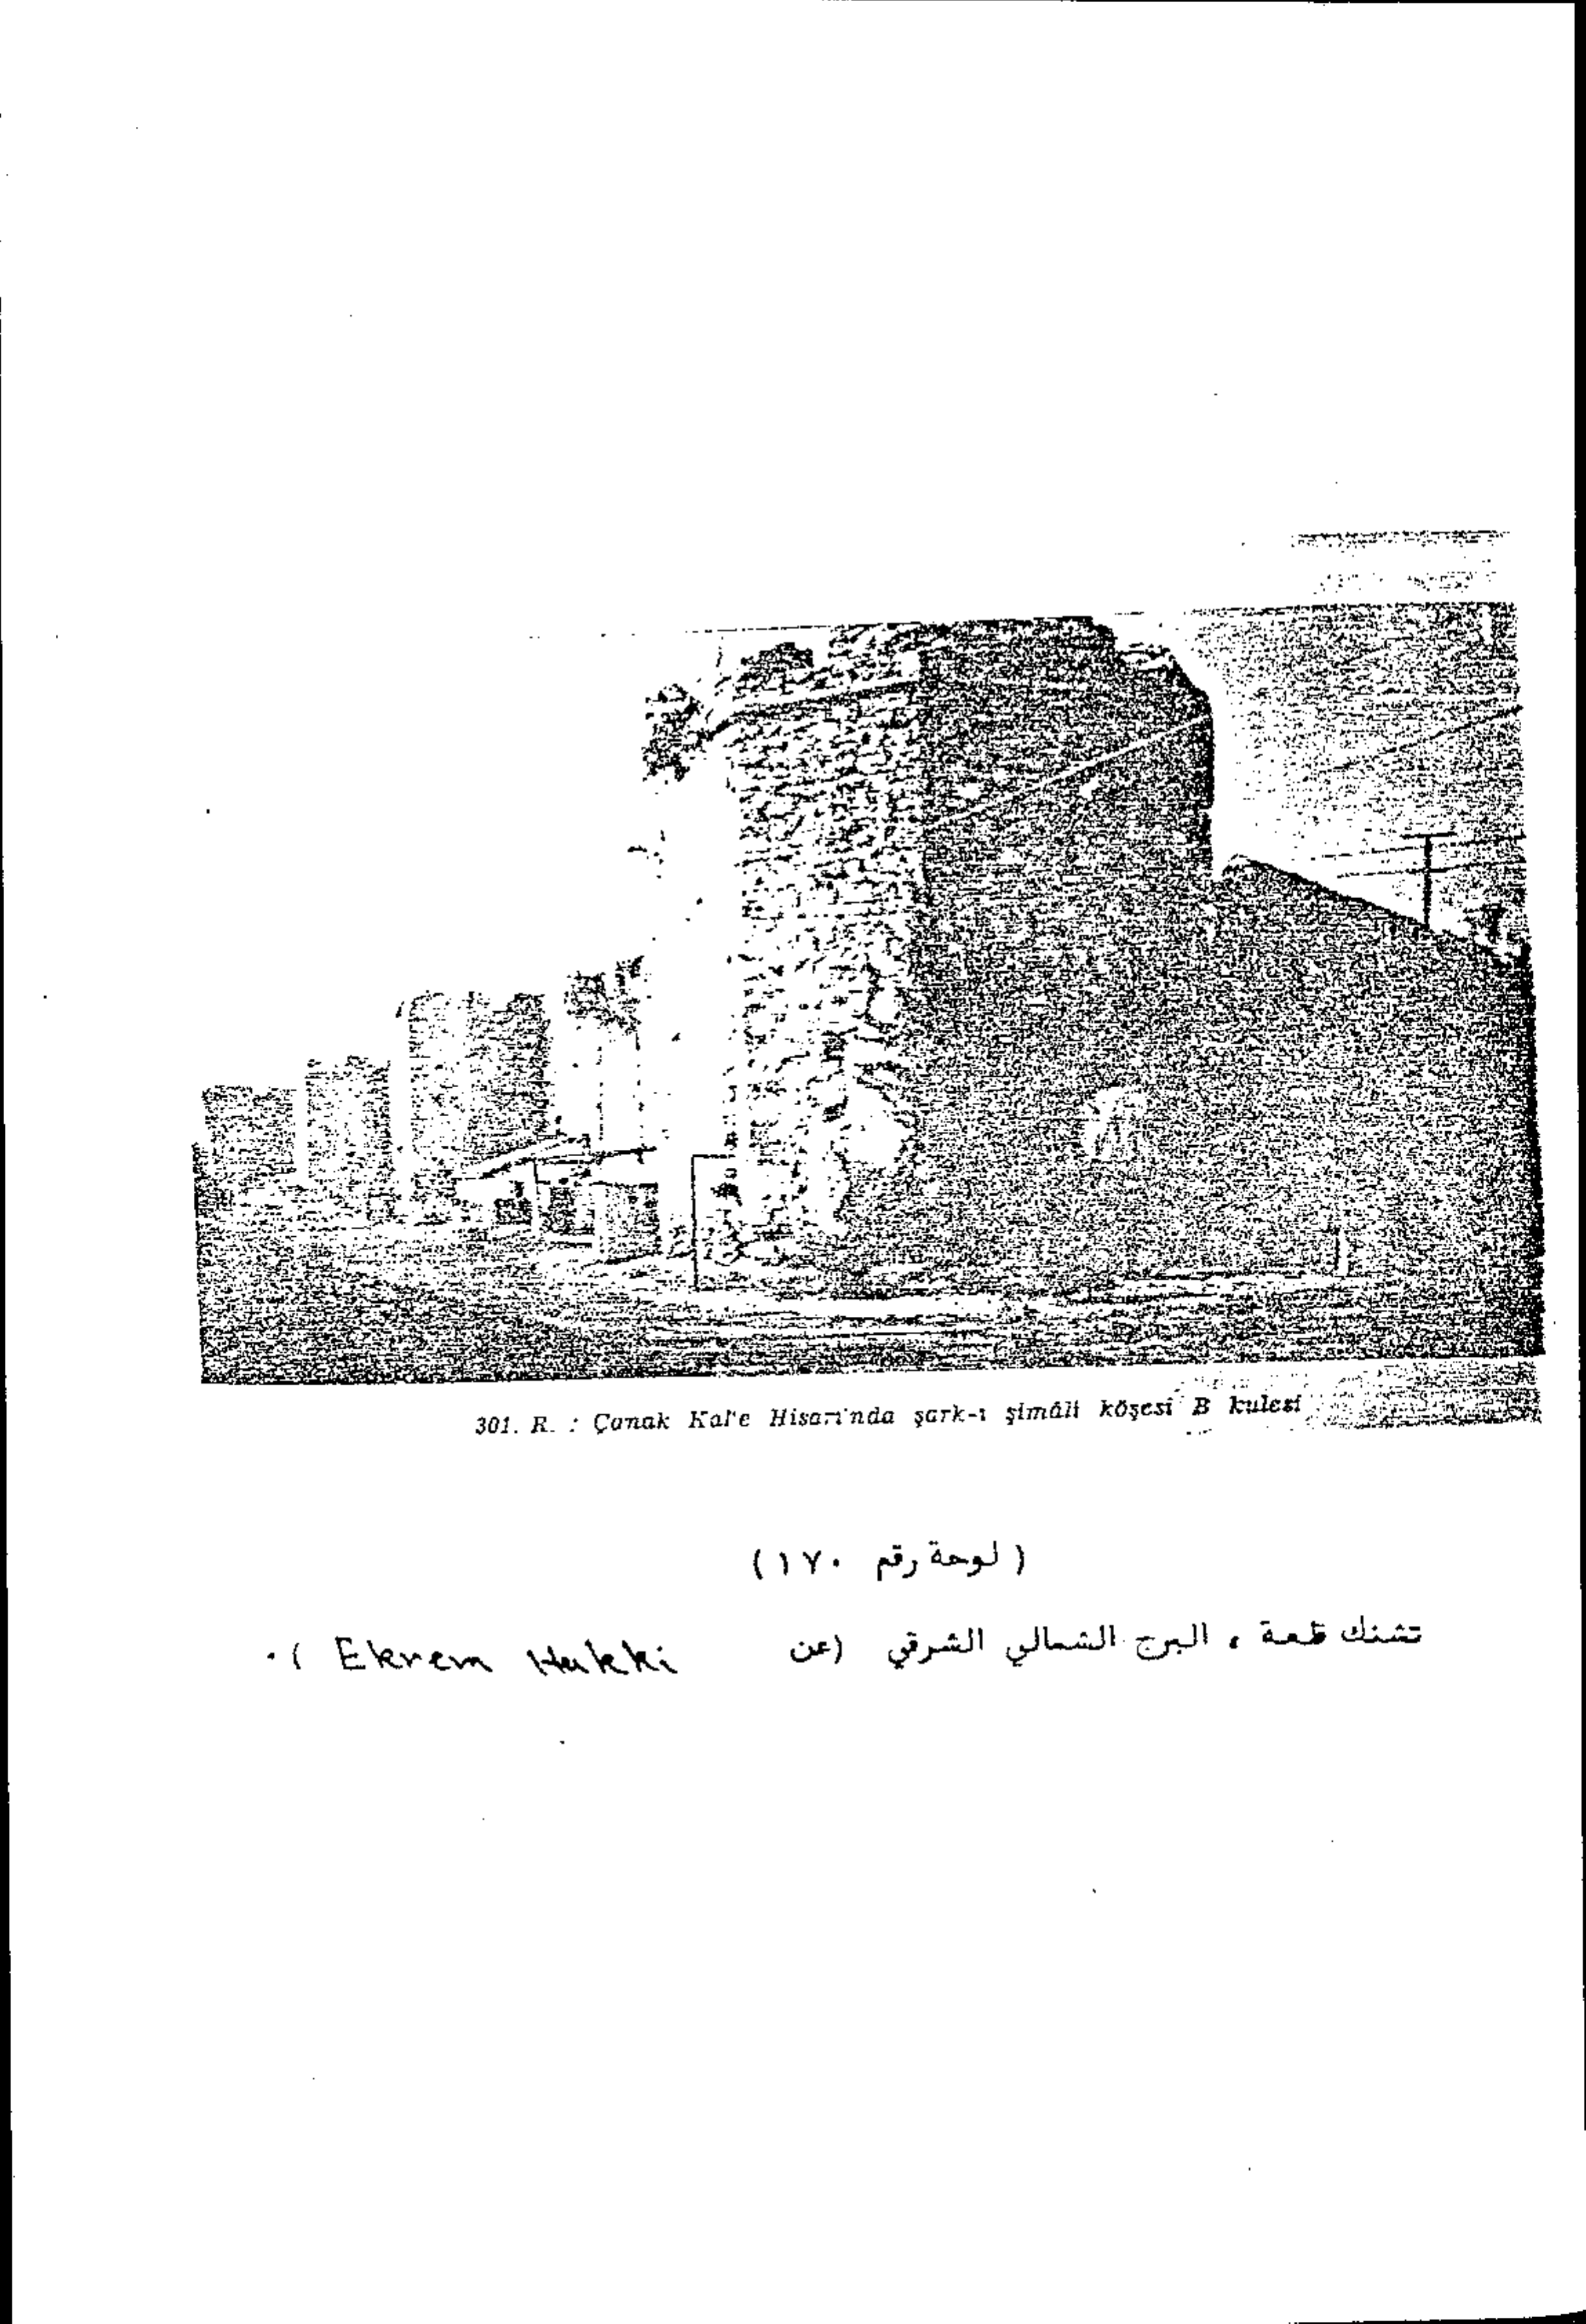 301. R. : Çanak Kal'e Hisarı'nda şark-ı şimâli köşesi B kulesi
( لوحة رقم ١٧٠ )
تشنك قلعة ، البرج الشمالي الشرقي (عن Ekrem Hakki ) .